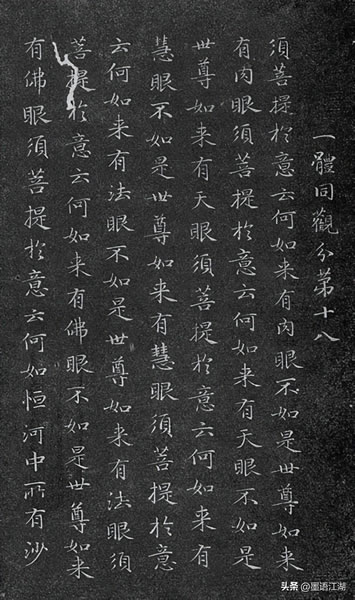 一體同觀分第十八
須菩提於意云何如来有肉眼不如是世尊如来
有肉眼須菩提於意云何如来有天眼不如是
世尊如来有天眼須菩提於意云何如来有
慧眼不如是世尊如来有慧眼須菩提於意
云何如来有法眼不如是世尊如来有法眼須
菩提於意云何如来有佛眼不如是世尊如来
有佛眼須菩提於意云何如恒河中所有沙
头条 @墨语江湖